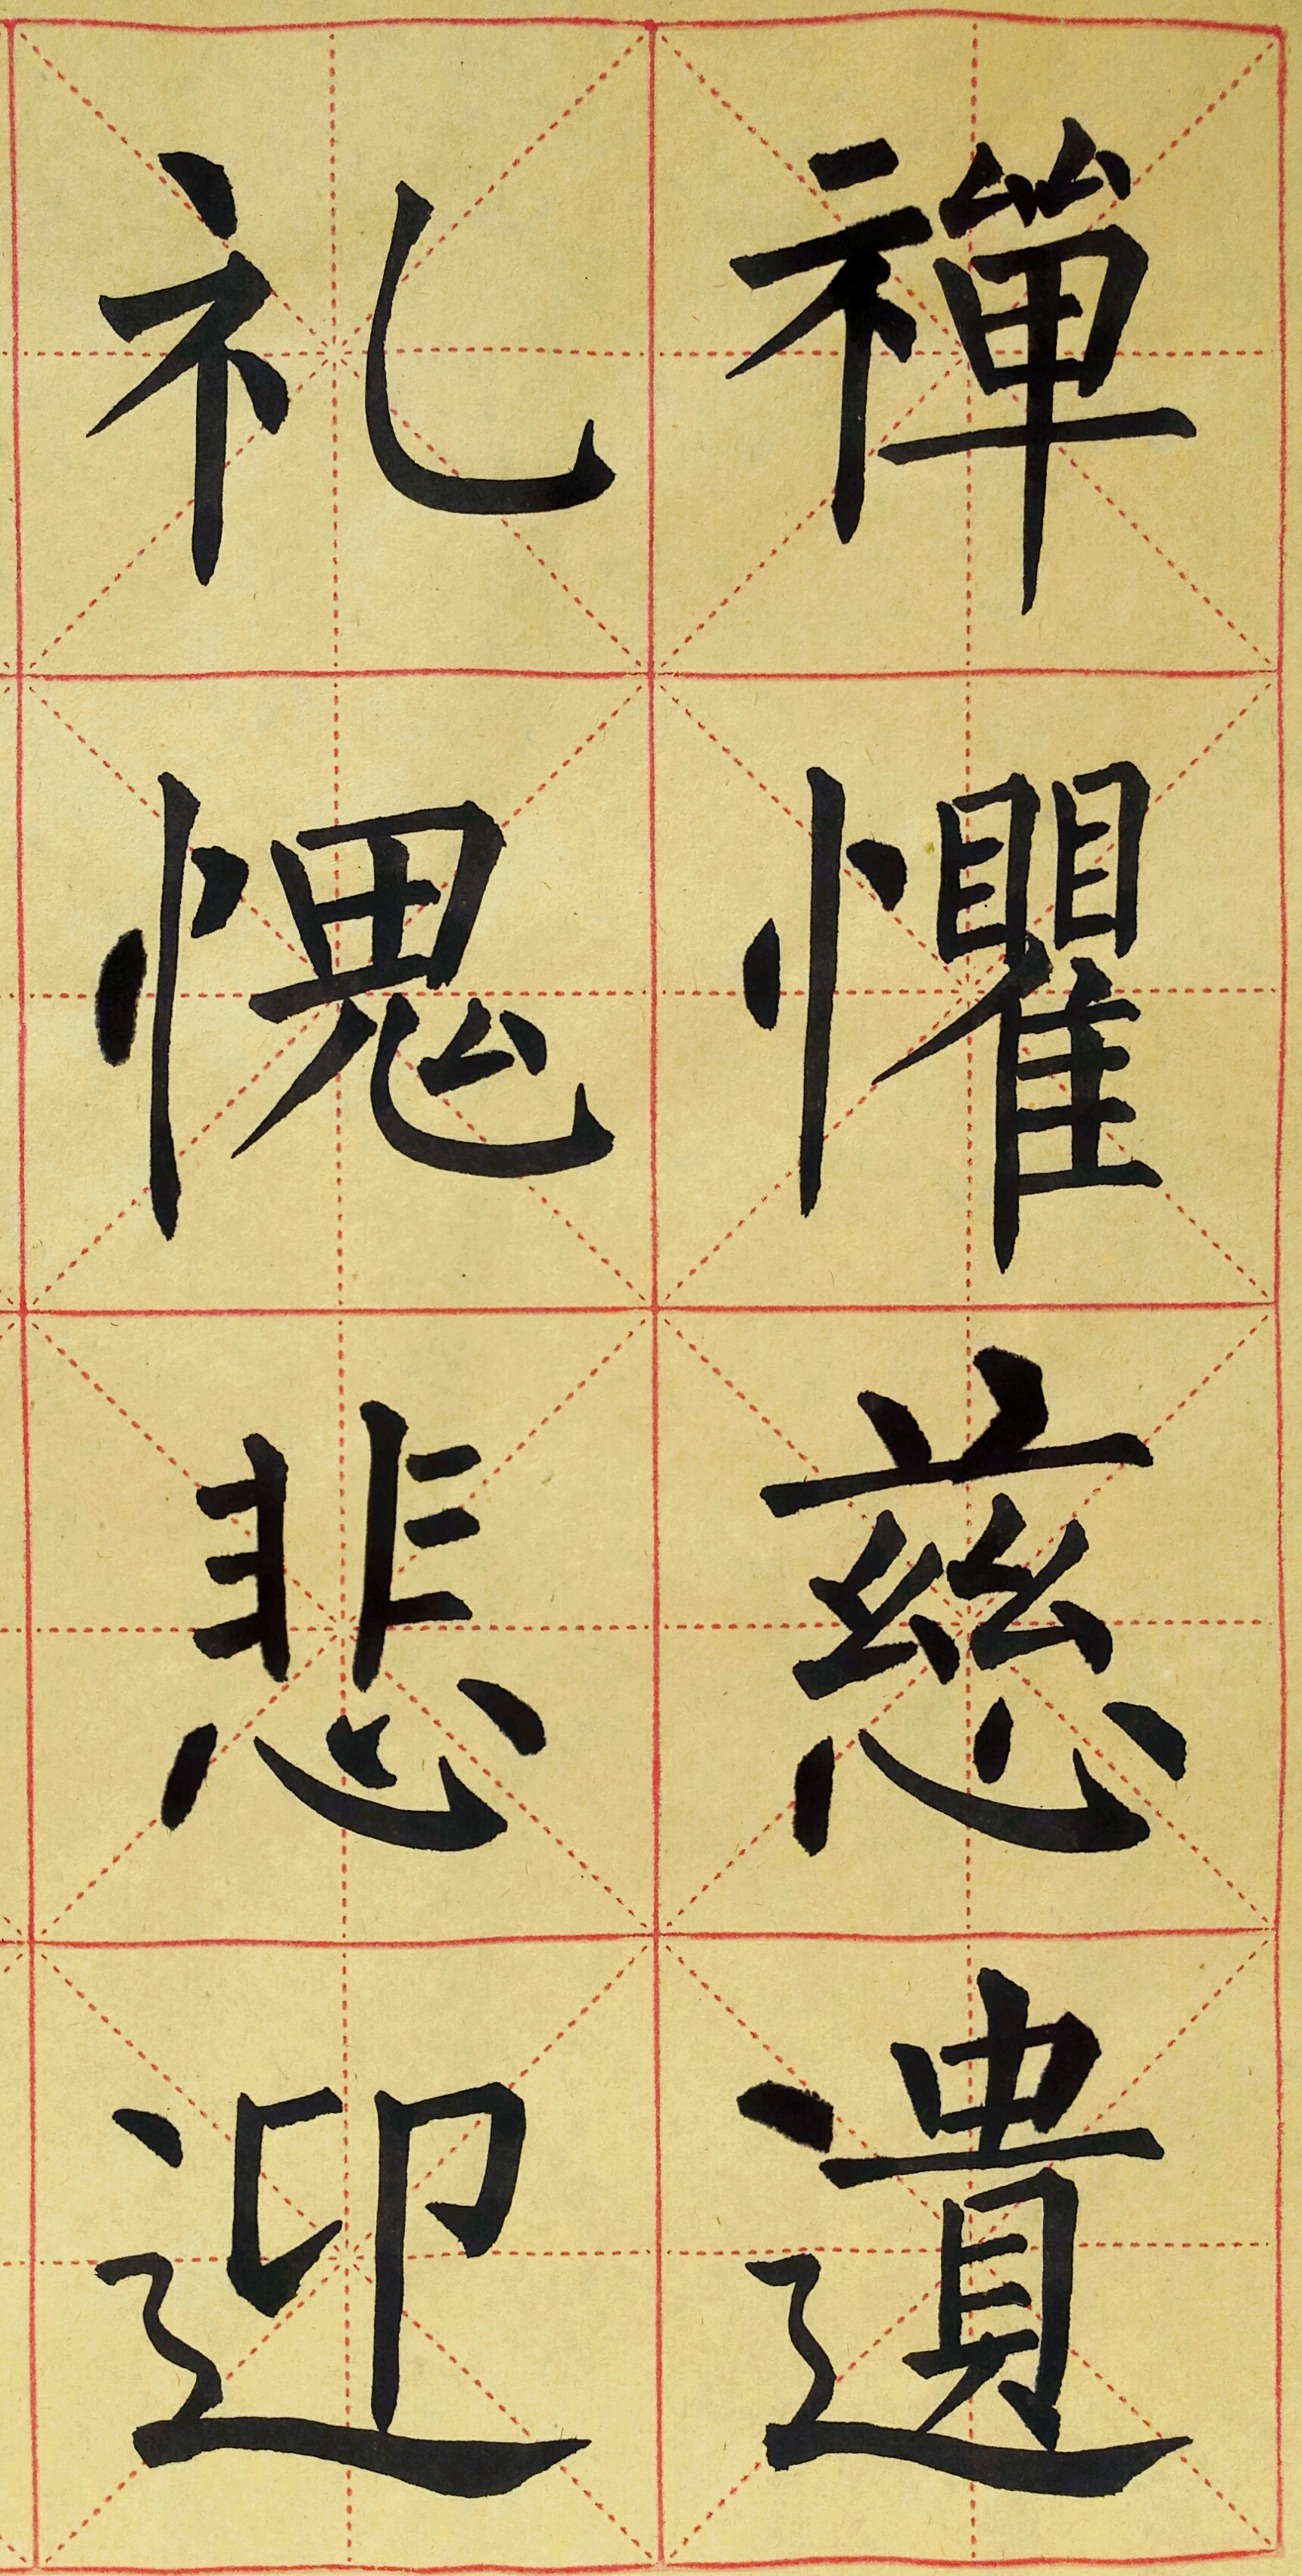 禪懼慈遺
礼愧悲迎